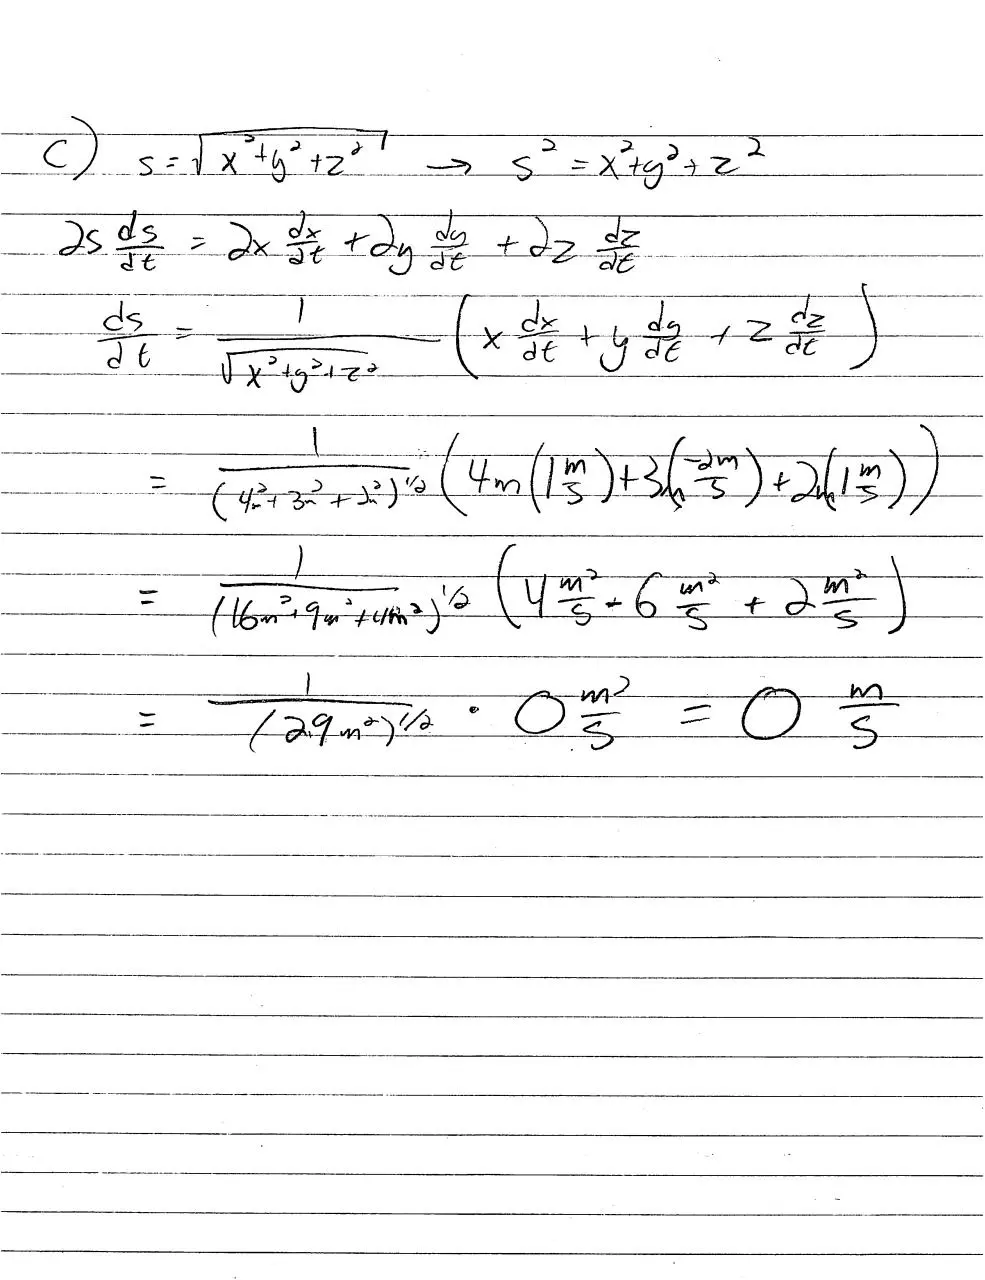 c) s = √(x²+y²+z²) → s² = x²+y²+z²
2s ds/dt = 2x dx/dt + 2y dy/dt + 2z dz/dt
ds/dt = 1/√(x²+y²+z²) (x dx/dt + y dy/dt + z dz/dt)
= 1/(4m² + 3m² + 2m²)^1/2 (4m(1 m/s) + 3m(-2m/s) + 2m(1 m/s))
= 1/(16m² + 9m² + 4m²)^1/2 (4 m²/s - 6 m²/s + 2 m²/s)
= 1/(29m²)^1/2 · 0 m²/s = 0 m/s